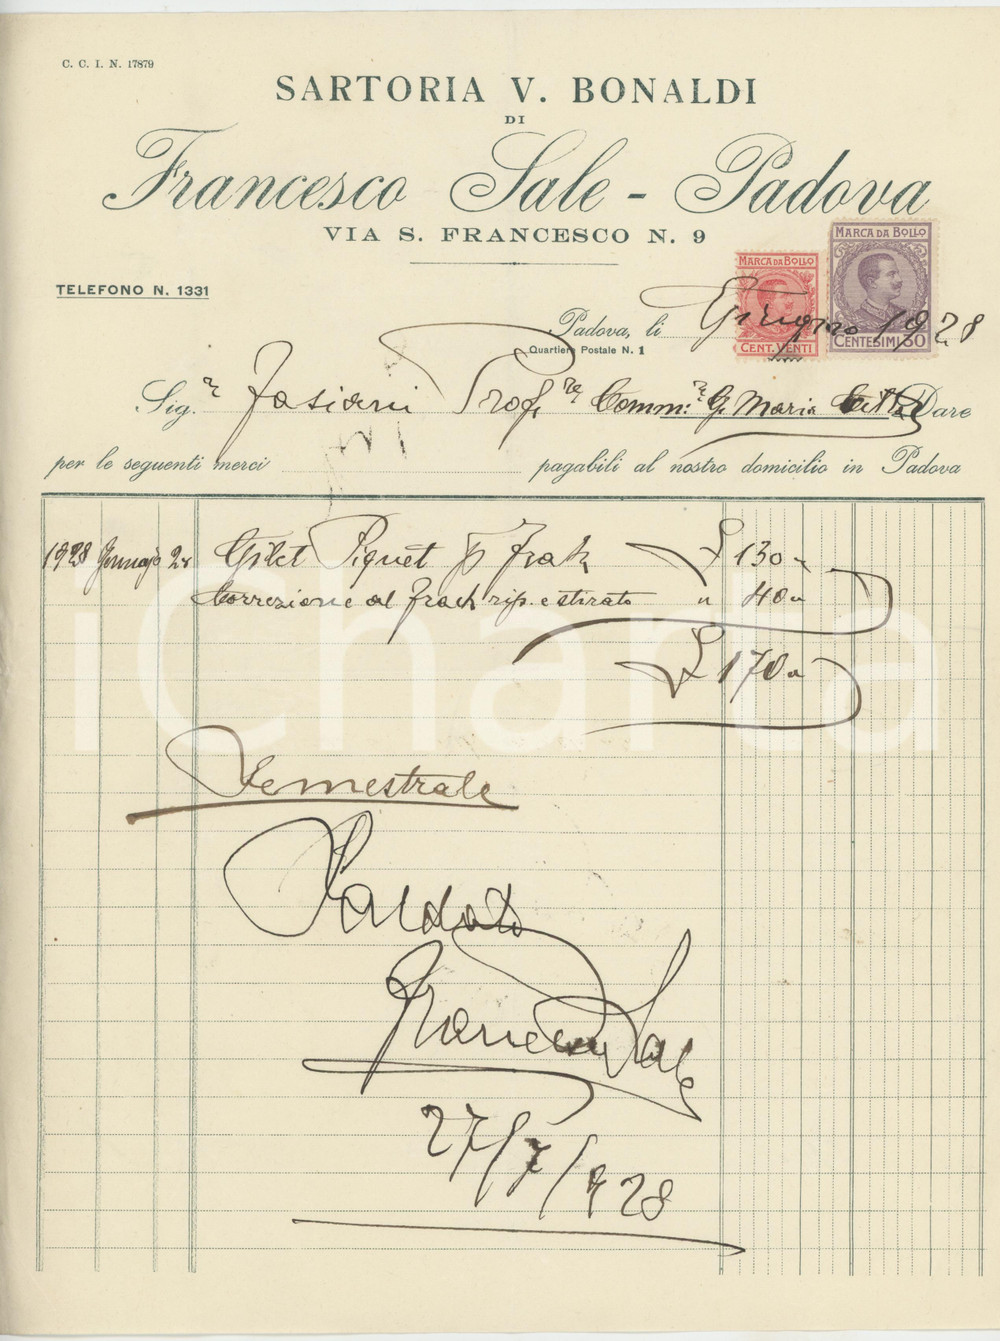 C. C. I. N. 17879
SARTORIA V. BONALDI
DI
Francesco Sale - Padova
VIA S. FRANCESCO N. 9
TELEFONO N. 1331
MARCA DA BOLLO
CENT. VENTI
MARCA DA BOLLO
CENTESIMI 50
Padova, li Giugno 1928
Quartiere Postale N. 1
Sig.r Fasiani Prof. Comm. G. Maria Città Dare
per le seguenti merci pagabili al nostro domicilio in Padova
1928 Gennajo Gilet Piquét p Frak £ 130
Correzione al frack rip. e stirato " 40
£ 170
Semestrale
Saldato
Francesco Sale
27/7/928
iCharta